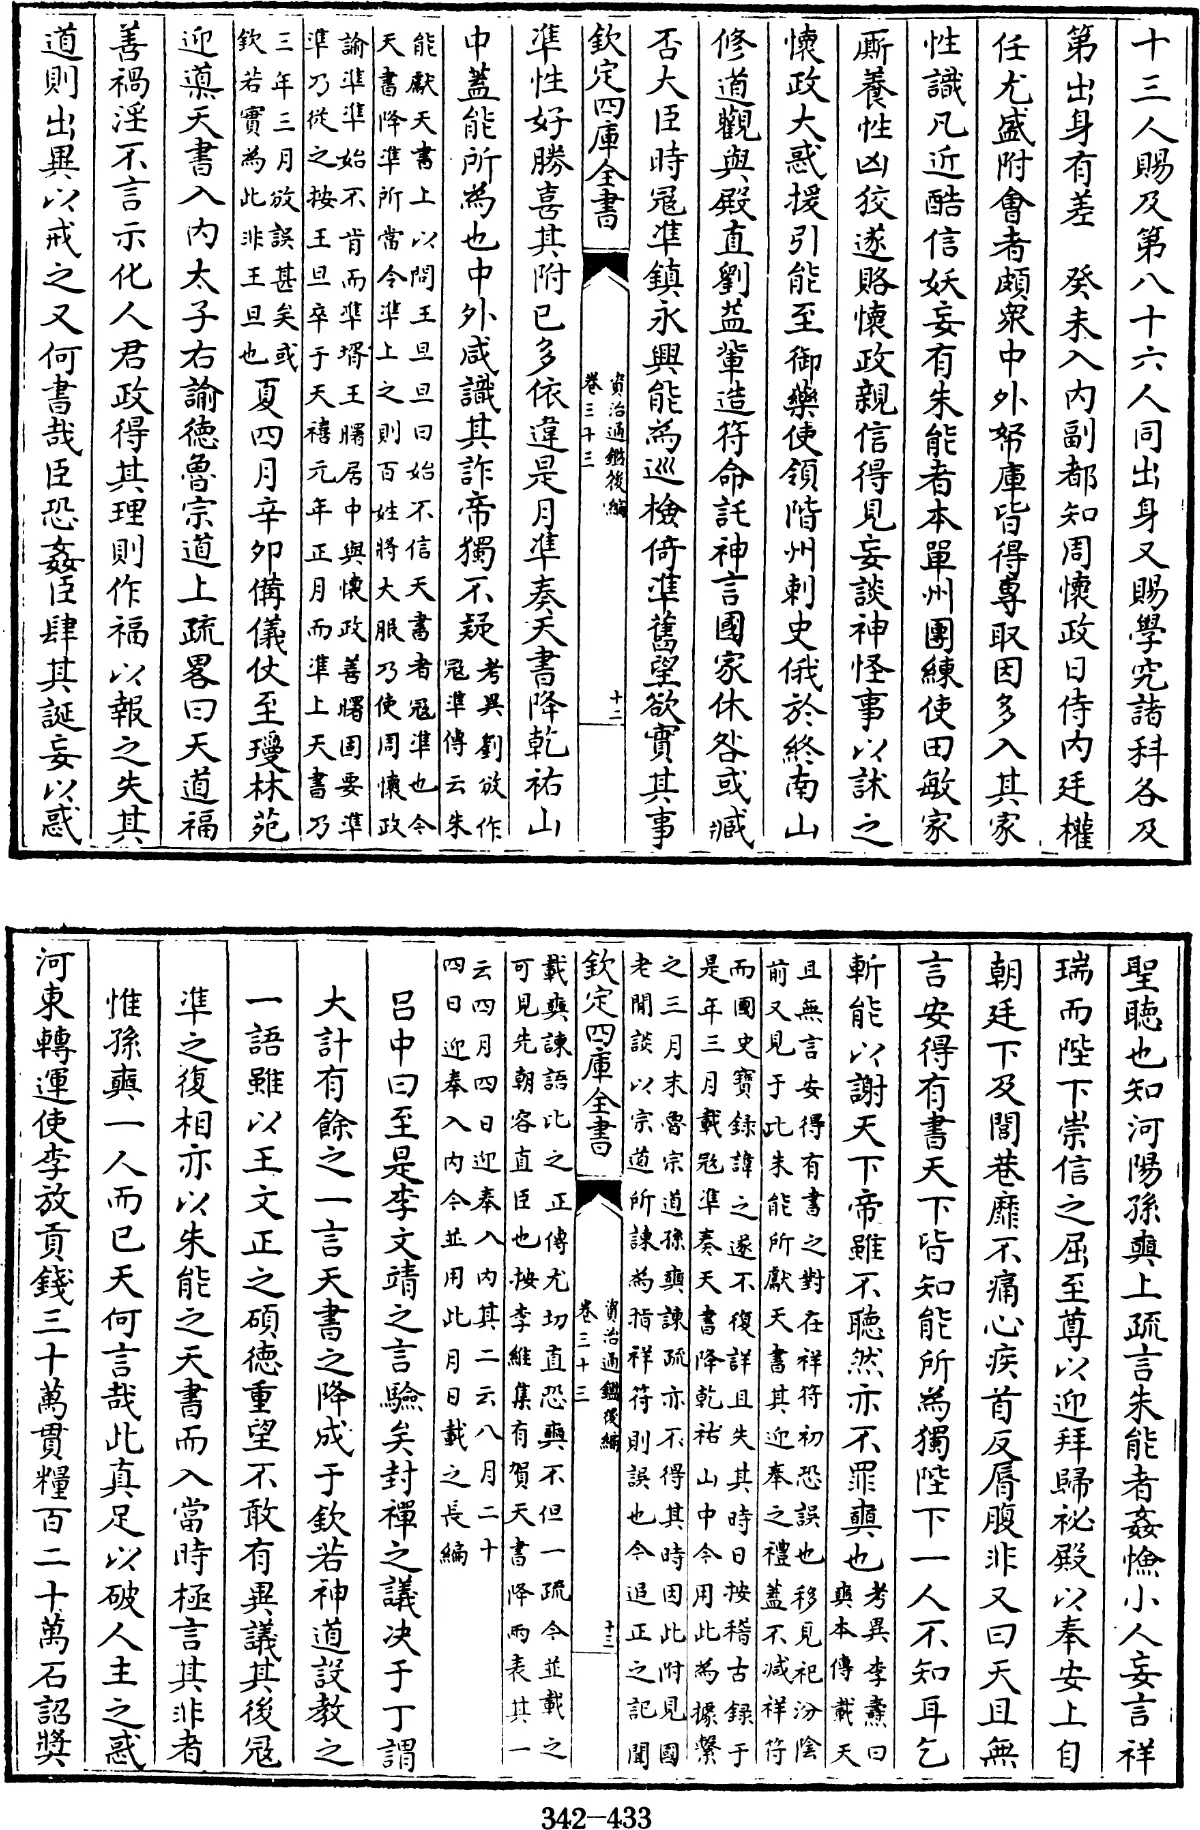 十三人賜及第八十六人同出身又賜學究諸科各及
第出身有差　癸未入内副都知周懷政日侍内廷權
任尤盛附會者頗衆中外帑庫皆得專取因多入其家
性識凡近酷信妖妄有朱能者本單州團練使田敏家
厮養性凶狡遂賂懷政親信得見妄談神怪事以訹之
懷政大惑援引能至御藥使領階州刺史俄於終南山
修道觀與殿直劉益輩造符命託神言國家休咎或臧
否大臣時冦凖鎮永興能為巡檢倚凖舊望欲實其事
欽定四庫全書
資治通鑑後編
卷三十三
十二
凖性好勝喜其附已多依違是月凖奏天書降乾祐山
中蓋能所為也中外咸識其詐帝獨不疑
考異劉攽作
冦凖傳云朱
能獻天書上以問王旦旦曰始不信天書者冦凖也今
天書降凖所當令凖上之則百姓將大服乃使周懷政
諭凖凖始不肯而凖壻王曙居中與懷政善曙固要凖
凖乃從之按王旦卒于天禧元年正月而凖上天書乃
三年三月攽誤甚矣或
欽若實為此非王旦也
夏四月辛卯備儀仗至瓊林苑
迎導天書入内太子右諭德魯宗道上疏畧曰天道福
善禍淫不言示化人君政得其理則作福以報之失其
道則出異以戒之又何書哉臣恐姦臣肆其誕妄以惑
聖聽也知河陽孫奭上疏言朱能者姦憸小人妄言祥
瑞而陛下崇信之屈至尊以迎拜歸祕殿以奉安上自
朝廷下及閭巷靡不痛心疾首反脣腹非又曰天且無
言安得有書天下皆知能所為獨陛下一人不知耳乞
斬能以謝天下帝雖不聽然亦不罪奭也
考異李燾曰
奭本傳載天
且無言安得有書之對在祥符初恐誤也移見祀汾陰
前又見于此朱能所獻天書其迎奉之禮蓋不減祥符
而國史寶錄諱之遂不復詳且失其時日按稽古錄于
是年三月載冦凖奏天書降乾祐山中今用此為據繫
之三月末魯宗道孫奭諫疏亦不得其時因此附見國
老閒談以宗道所諫為指祥符則誤也今追正之記聞
欽定四庫全書
資治通鑑後編
卷三十三
十三
載奭諫語比之正傳尤切直恐奭不但一疏今並載之
可見先朝容直臣也按李維集有賀天書降兩表其一
云四月四日迎奉入内其二云八月二十
四日迎奉入内今並用此月日載之長編
吕中曰至是李文靖之言驗矣封禪之議决于丁謂
大計有餘之一言天書之降成于欽若神道設教之
一語雖以王文正之碩德重望不敢有異議其後冦
凖之復相亦以朱能之天書而入當時極言其非者
惟孫奭一人而已天何言哉此真足以破人主之惑
河東轉運使李放貢錢三十萬貫糧百二十萬石詔獎
342-433